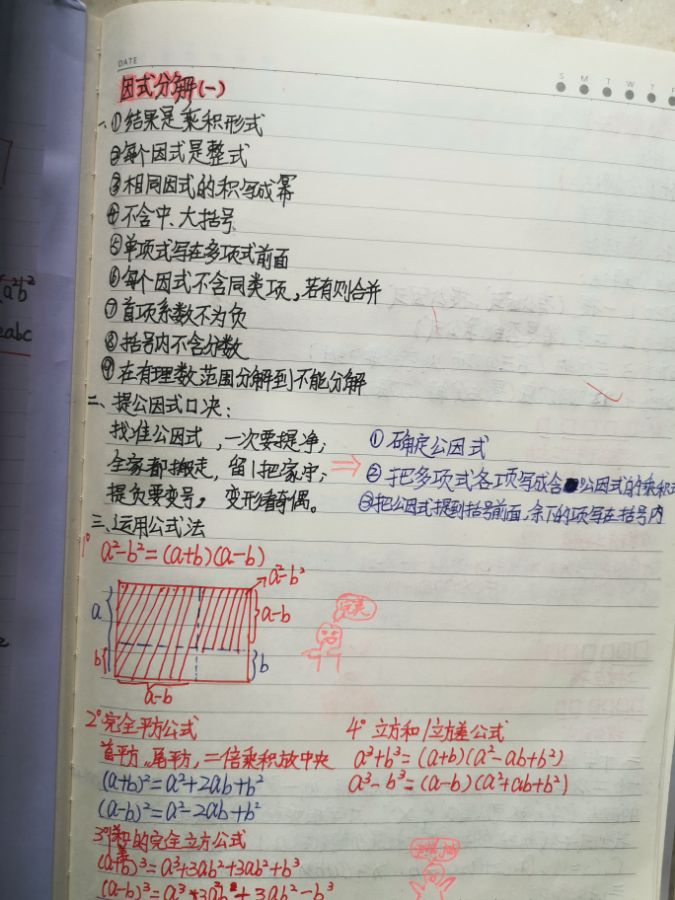 DATE
S M T W T F
因式分解(一)
一、①结果是乘积形式
②每个因式是整式
③相同因式的积写成幂
④不含中、大括号
⑤单项式写在多项式前面
⑥每个因式不含同类项，若有则合并
⑦首项系数不为负
⑧括号内不含分数
⑨在有理数范围分解到不能分解
二、提公因式口决：
找准公因式，一次要提净；
全家都搬走，留1把家守；
提负要变号，变形看奇偶。
⇒
① 确定公因式
② 把多项式各项写成含公因式的乘积
③把公因式提到括号前面，余下的项写在括号内
三、运用公式法
1° a²-b²=(a+b)(a-b)
a²-b²
a
b
a-b
b
a-b
完美
2°完全平方公式
首平方，尾平方，二倍乘积放中央
(a+b)²=a²+2ab+b²
(a-b)²=a²-2ab+b²
4° 立方和/立方差公式
a³+b³=(a+b)(a²-ab+b²)
a³-b³=(a-b)(a²+ab+b²)
的完全立方公式
(a+b)³=a³+3ab²+3ab²+b³
(a-b)³=a³-3a²b+3ab²-b³
a²b²
abc